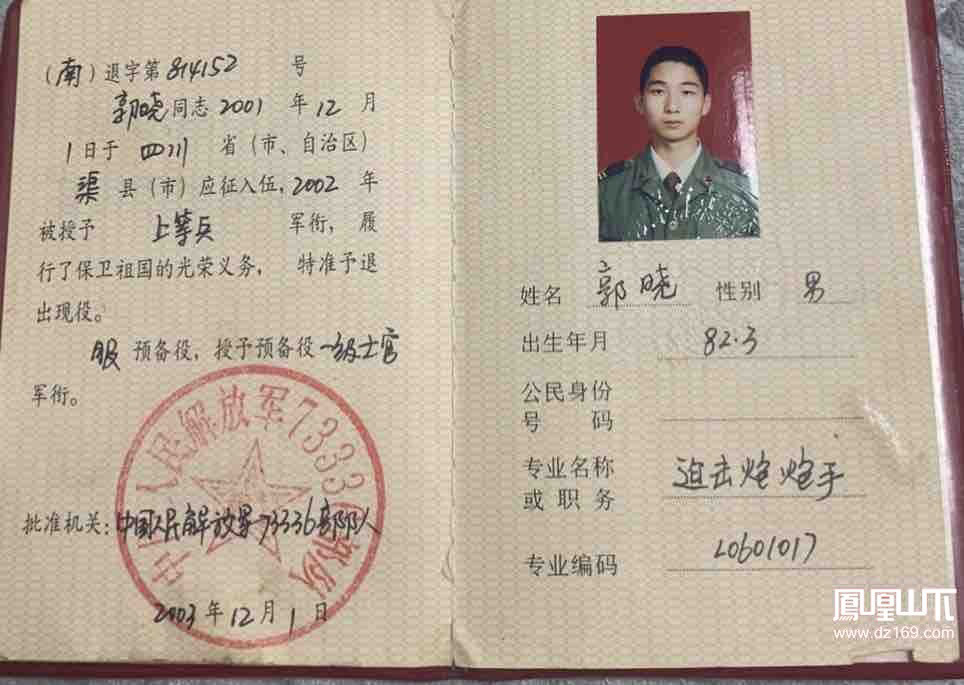 （南）退字第814152 号
郭晓同志2001 年12月
1日于 四川 省（市、自治区）
渠县（市）应征入伍，2002 年
被授予 上等兵 军衔，履
行了保卫祖国的光荣义务， 特准予退
出现役。
服 预备役，授予预备役一级士官
军衔。
批准机关：中国人民解放军73336部队
2003年12月1日
中国人民解放军73336部队
姓名 郭晓 性别 男
出生年月 82.3
公民身份
号 码
专业名称
或 职 务 迫击炮炮手
专业编码 L0601017
鳳凰山下
www.dz169.com